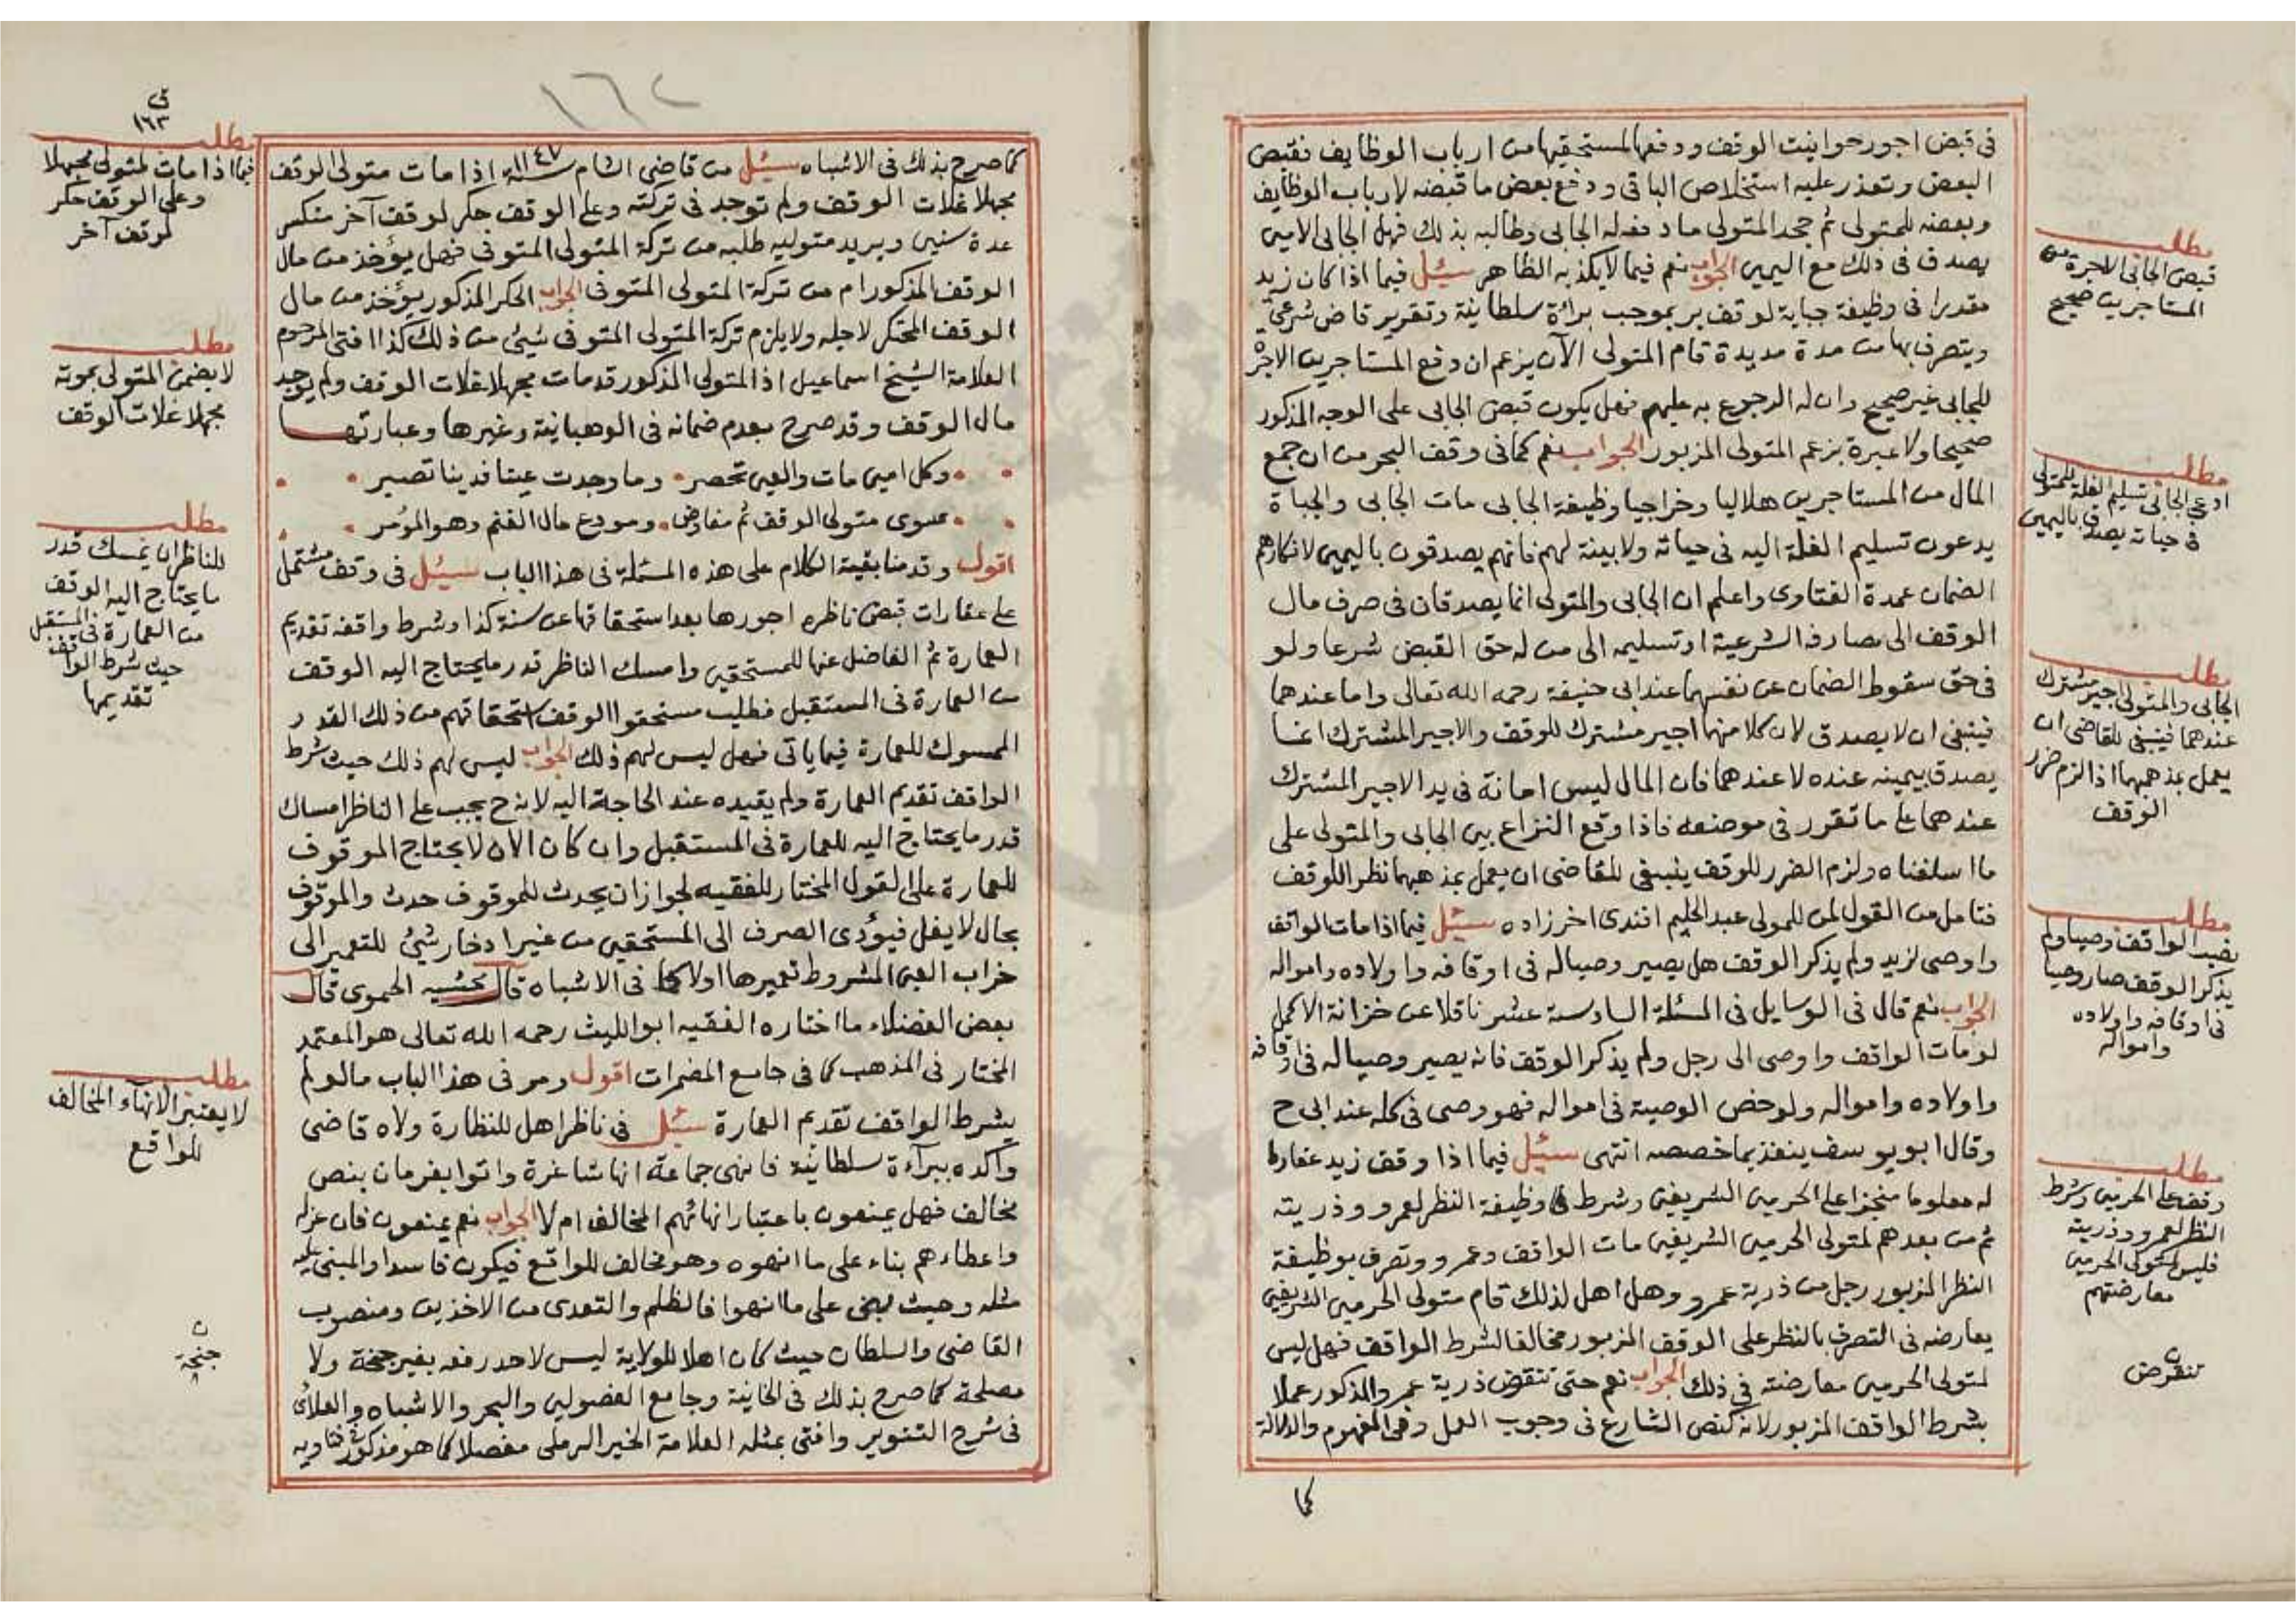 فى قبض اجور حوانيت الوقف ودفعها لمستحقيها من ارباب الوظايف فقبض
البعض وتعذر عليه استخلاص الباقى ودفع بعض ما قبضه لارباب الوظايف
وبعضه للمتولى ثم جحد المتولى ما دفعه له الجابى وطالبه بذلك فهل الجابى الامين
يصدق فى ذلك مع اليمين الجواب نعم فيما لا يكذبه الظاهر سئل فيما اذا كان زيد
مقدرا فى وظيفة جباية لوقف بر بموجب براءة سلطانية وتقرير قاض شرعى
ويتصرف بها من مدة مديدة قام المتولى الآن يزعم ان دفع المستاجرين الاجرة
للجابى غير صحيح وان له الرجوع به عليهم فهل يكون قبض الجابى على الوجه المذكور
صحيحا ولا عبرة بزعم المتولى المزبور الجواب نعم كما فى وقف البحر من ان جمع
المال من المستاجرين هلاليا وخراجيا وظيفة الجابى مات الجابى والجباة
يدعون تسليم الغلة اليه فى حياته ولا بينة لهم فانهم يصدقون باليمين لانكارهم
الضمان عمدة الفتاوى واعلم ان الجابى والمتولى انما يصدقان فى صرف مال
الوقف الى مصارفه الشرعية او تسليمه الى من له حق القبض شرعا ولو
فى حق سقوط الضمان عن نفسهما عند ابى حنيفة رحمه الله تعالى واما عندهما
فينبغى ان لا يصدق لان كلا منهما اجير مشترك للوقف والاجير المشترك انما
يصدق بيمينه عنده لا عندهما فان المال ليس امانة فى يد الاجير المشترك
عندهما على ما تقرر فى موضعه فاذا وقع النزاع بين الجابى والمتولى على
ما اسلفناه ولزم الضرر للوقف ينبغى للقاضى ان يعمل بمذهبهما نظرا للوقف
فتامل من القول لمن للمولى عبد الحليم افندى اخى زاده سئل فيما اذا مات الواقف
واوصى لزيد ولم يذكر الوقف هل يصير وصيا له فى اوقافه واولاده وامواله
الجواب نعم قال فى الوسايل فى المسئلة السادسة عشر ناقلا عن خزانة الاكمل
لو مات الواقف واوصى الى رجل ولم يذكر الوقف فانه يصير وصيا له فى اوقافه
واولاده وامواله ولو خص الوصية فى امواله فهو وصى فى كله عند ابى ح
وقال ابو يوسف ينفذ بما خصصه انتهى سئل فيما اذا وقف زيد عقارا
له معلوما منجزا على الحرمين الشريفين وشرط وظيفة النظر لعمرو وذريته
ثم من بعدهم لمتولى الحرمين الشريفين مات الواقف وعمرو وتصرف بوظيفة
النظر المزبور رجل من ذرية عمرو وهل اهل لذلك قام متولى الحرمين الشريفين
يعارضه فى التصرف بالنظر على الوقف المزبور مخالفا لشرط الواقف فهل ليس
لمتولى الحرمين معارضته فى ذلك الجواب نعم حتى تنقرض ذرية عمرو المذكور عملا
بشرط الواقف المزبور لانه كنص الشارع فى وجوب العمل وفى المفهوم والدلالة
كما
مطلب
قبض الجابى الاجرة من
المستاجرين صحيح
مطلب
ادعى الجابى تسليم الغلة للمتولى
فى حياته يصدق باليمين
مطلب
الجابى والمتولى اجير مشترك
عندهما فينبغى للقاضى ان
يعمل بمذهبهما اذا لزم ضرر
الوقف
مطلب
نصب الواقف وصيا ولم
يذكر الوقف صار وصيا
فى اوقافه واولاده
وامواله
مطلب
وقف على الحرمين وشرط
النظر لعمرو وذريته
فليس لمتولى الحرمين
معارضتهم
تنقرض
١٦٢
كما صرح بذلك فى الاشباه سئل من قاضى الشام سنة ١١٤٧ اذا مات متولى الوقف
مجهلا غلات الوقف ولم توجد فى تركته وعلى الوقف حكر لوقف آخر منكسر
عدة سنين ويريد متوليه طلبه من تركة المتولى المتوفى فهل يؤخذ من مال
الوقف المذكور ام من تركة المتولى المتوفى الجواب الحكر المذكور يؤخذ من مال
الوقف المحتكر لاجله ولا يلزم تركة المتولى المتوفى شيئ من ذلك كذا افتى المرحوم
العلامة الشيخ اسماعيل اذ المتولى المذكور قد مات مجهلا غلات الوقف ولم يوجد
مال الوقف وقد صرح بعدم ضمانه فى الوهبانية وغيرها وعبارتها
وكل امين مات والعين تحصر وما وجدت عينا فدينا تصير
سوى متولى الوقف ثم مفاوض ومودع مال الغنم وهو المؤمر
اقول وقدمنا بقية الكلام على هذه المسئلة فى هذا الباب سئل فى وقف مشتمل
على عقارات قبض ناظره اجورها بعد استحقاقها عن سنة كذا وشرط واقفه تقديم
العمارة ثم الفاضل عنها للمستحقين وامسك الناظر قدر ما يحتاج اليه الوقف
من العمارة فى المستقبل فطلب مستحقوا الوقف استحقاقهم من ذلك القدر
الممسوك للعمارة فيما ياتى فهل ليس لهم ذلك الجواب ليس لهم ذلك حيث شرط
الواقف تقديم العمارة ولم يقيده عند الحاجة اليه لانه ح يجب على الناظر امساك
قدر ما يحتاج اليه للعمارة فى المستقبل وان كان الآن لا يحتاج الموقوف
للعمارة على القول المختار للفقيه لجواز ان يحدث للموقوف حدث والموقوف
بحال لا يغل فيؤدى الصرف الى المستحقين من غير ادخار شيئ للتعمير الى
خراب العين المشروط تعميرها اولا كما فى الاشباه قال محشيه الحموى قال
بعض الفضلاء ما اختاره الفقيه ابو الليث رحمه الله تعالى هو المعتمد
المختار فى المذهب كما فى جامع المضمرات اقول ومر فى هذا الباب ما لو لم
يشرط الواقف تقديم العمارة سئل فى ناظر اهل للنظارة ولاه قاضى
واكده ببراءة سلطانية فانهى جماعة انها شاغرة واتوا بفرمان بنص
مخالف فهل يمنعون باعتبار انهائهم المخالف ام لا الجواب نعم يمنعون فان عزله
واعطاءهم بناء على ما انهوه وهو مخالف للواقع فيكون فاسدا والمبنى عليه
مثله وحيث بنى على ما انهوا فالظلم والتعدى من الاخذين ومنصوب
القاضى والسلطان حيث كان اهلا للولاية ليس لاحد رفعه بغير جنحة ولا
مصلحة كما صرح بذلك فى الخانية وجامع الفصولين والبحر والاشباه والعلائى
فى شرح التنوير وافتى بمثله العلامة الخير الرملى مفصلا كما هو مذكور فى فتاويه
١٦٣
مطلب
فيما اذا مات المتولى مجهلا
وعلى الوقف حكر
لوقف آخر
مطلب
لا يضمن المتولى بموته
مجهلا غلات الوقف
مطلب
للناظر ان يمسك قدر
ما يحتاج اليه الوقف
من العمارة فى المستقبل
حيث شرط الواقف
تقديمها
مطلب
لا يعتبر الانهاء المخالف
للواقع
ن
جنحة